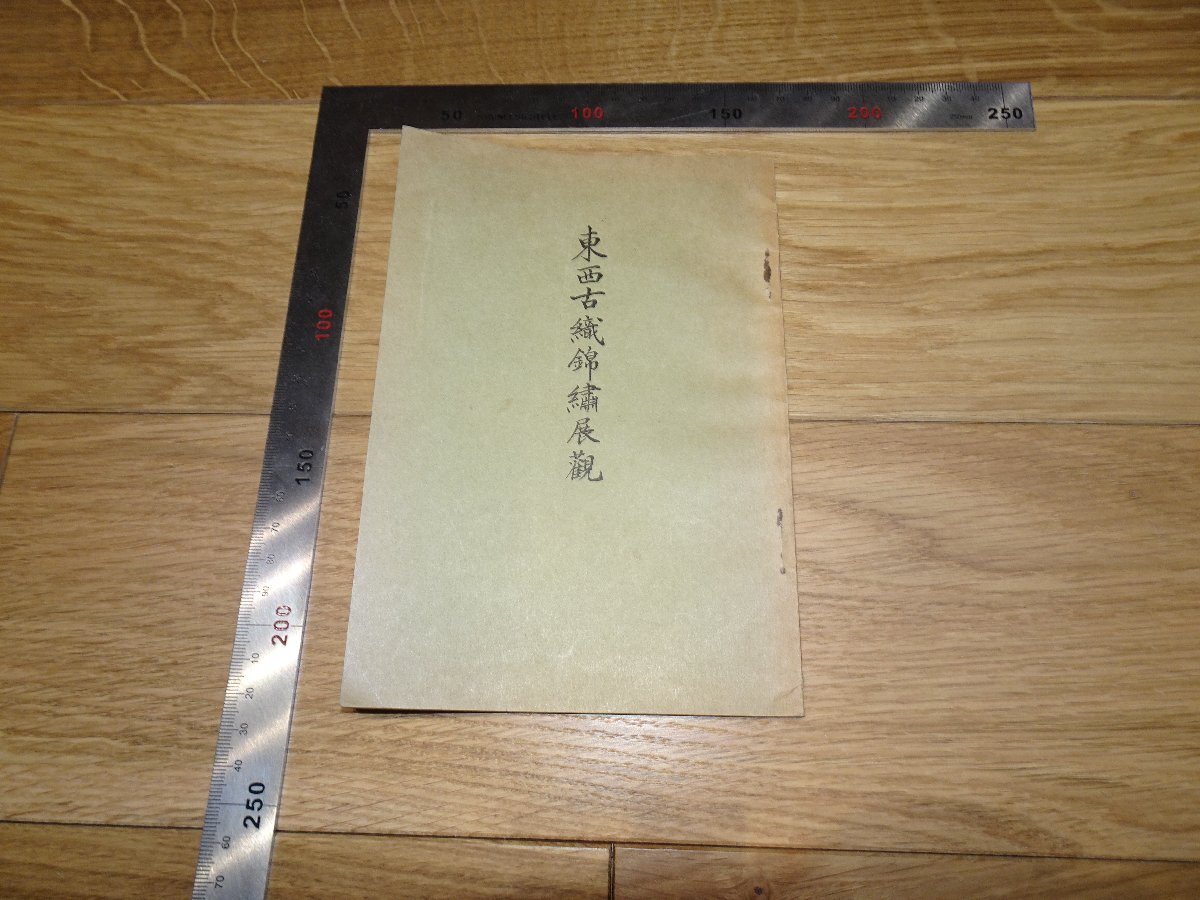 50 100 150 200 250
50
100
150
200
250
東西古織錦繡展觀